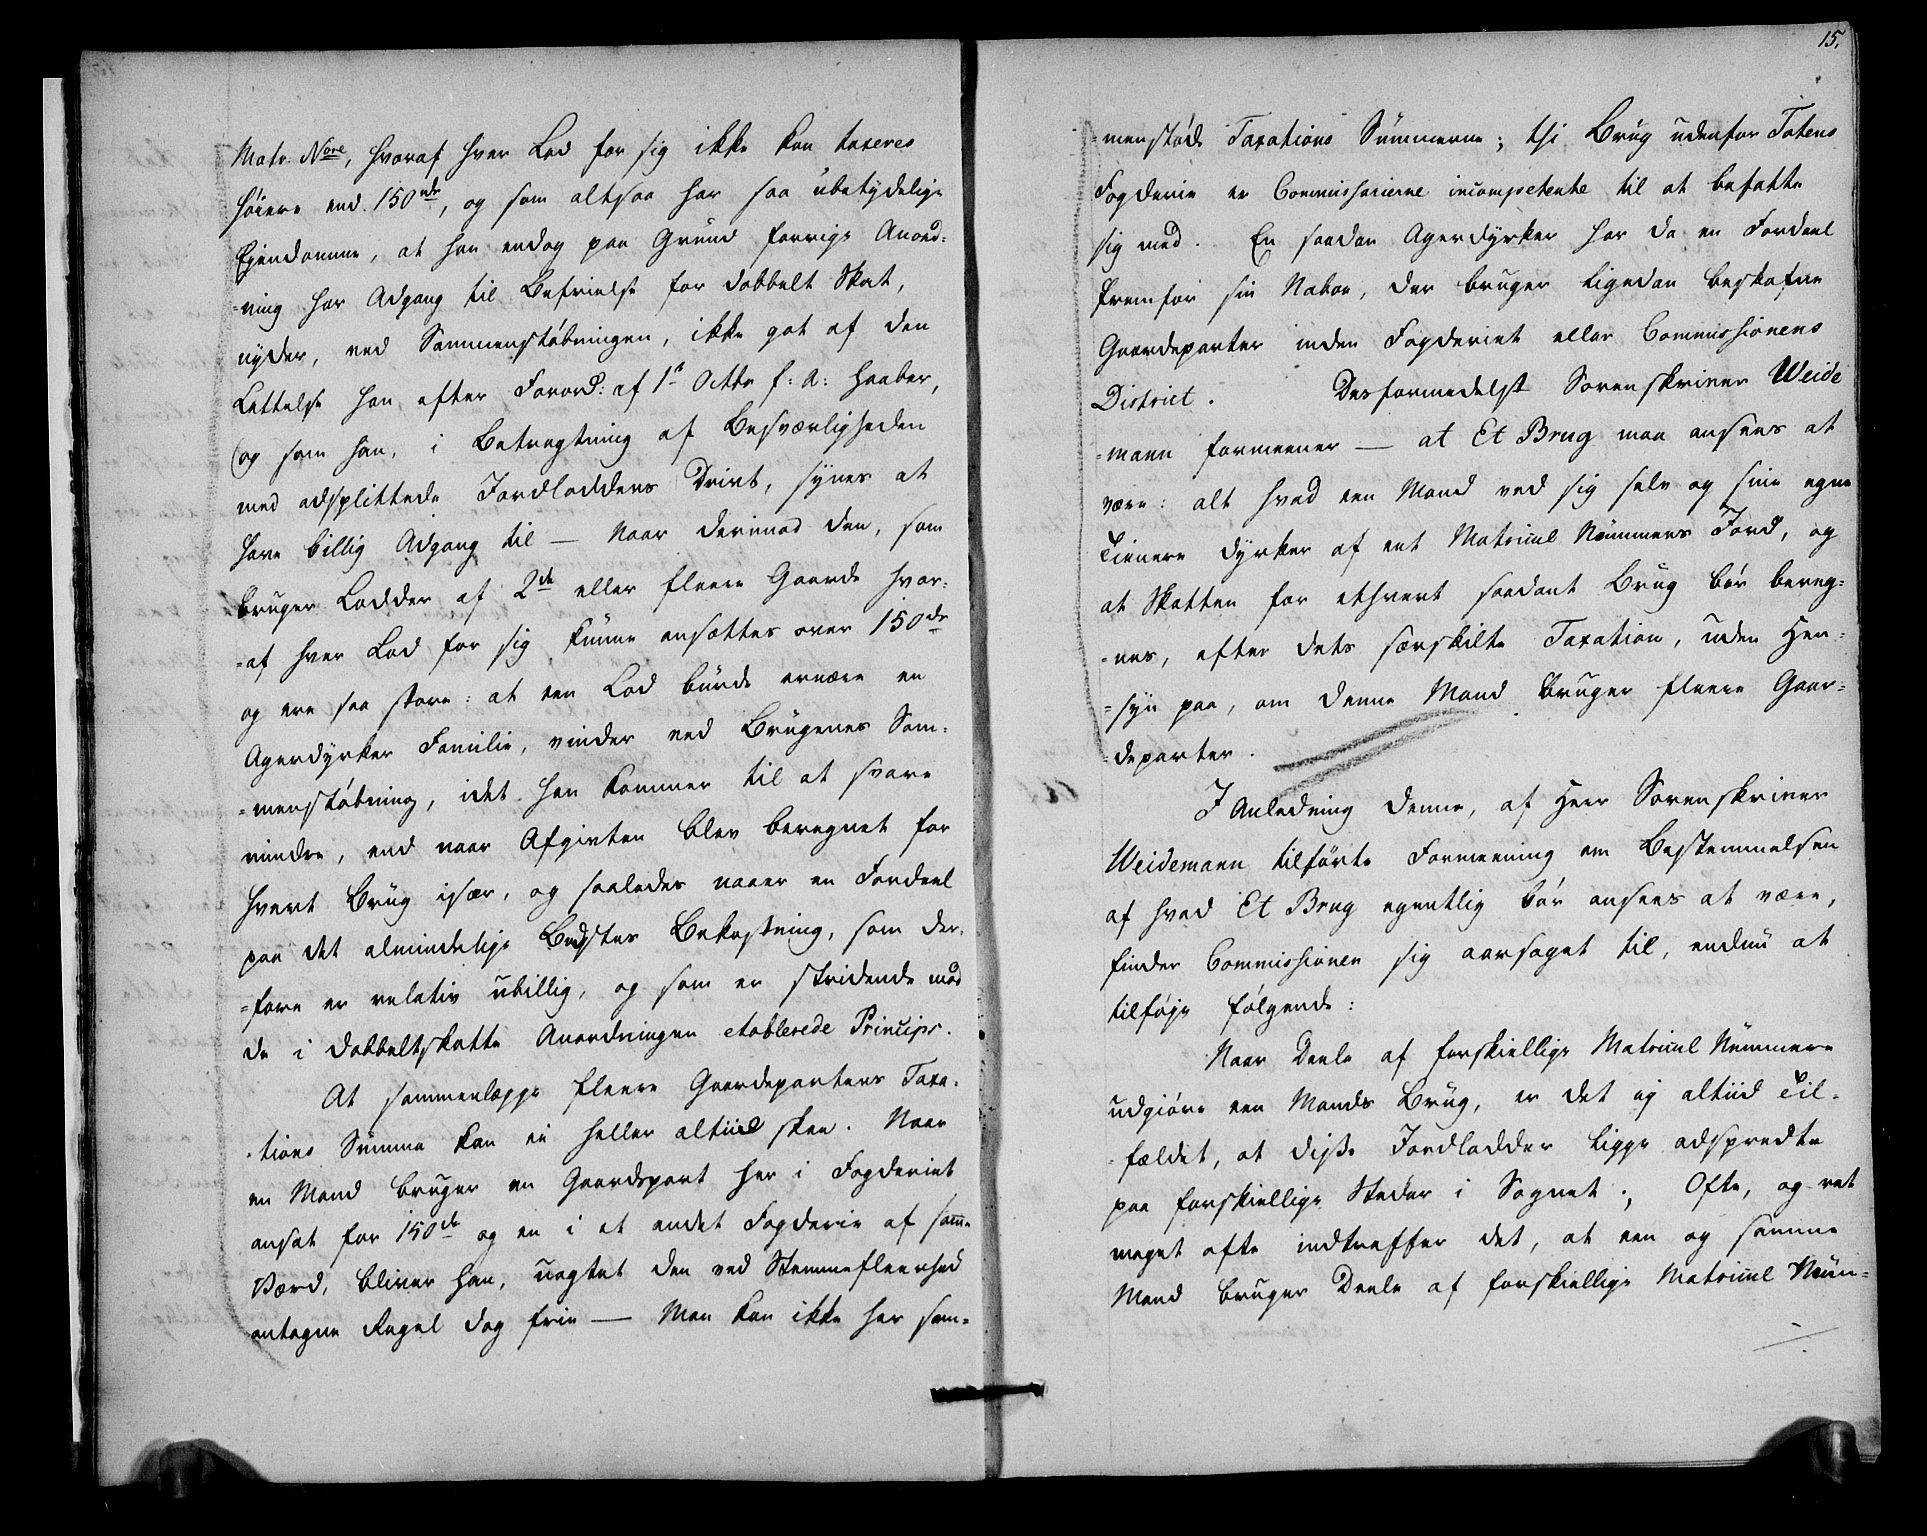 Matr. Nore, hvoraf hver Lod for sig ikke kan taxeres
høiere end 150 rdr, og som altsaa har saa ubetydelige
Ejendomme, at han endog paa Grund forrige Anord-
-ning har Adgang til Befrielse for dobbelt Skat,
nyder, ved Sammenstøbningen, ikke got af den
Lettelse han efter Forord: af 1st Octbr f: A: haaber,
og som han, i Betragtning af Besværligheden
med adsplittede Jordlodders Drivt, synes at
have billig Adgang til — Naar derimod den, som
bruger Lodder af 2de eller fleere Gaarde hvor-
-af hver Lod for sig kunne ansættes over 150 dr
og ere saa store: at een Lod burde ernære en
Agerdyrker Familie, vinder ved Brugenes Sam-
-menstøbning, idet han kommer til at svare
mindre, end naar Afgivten blev beregnet for
hvert Brug især, og saaledes naaer en Fordeel
paa det almindelige Bedstes Bekostning, som der-
-fore er relativ ubillig, og som er stridende mod
de i dobbeltskatte Anordningen etablerede Princips.
At sammenlægge fleere Gaardeparters Taxa-
-tions Summa kan ei heller altiid skee. Naar
en Mand bruger en Gaardspart her i Fogderiet
ansat for 150 dr og en i et andet Fogderie af samme
Værd, bliver han, uagtet den ved Stemmefleerhed
antagne Regel dog frie — Man kan ikke her sam-
15.
-menstøde Taxations Summerne; thi Brug udenfor Totens
Fogderie er Commissarierne incompetente til at befatte
sig med. En saadan Agerdyrker har da en Fordeel
fremfor sin Naboe, der bruger ligedan beskafne
Gaardeparter inden Fogderiet eller Commissionens
District. Desformedelst Sorenskriver Weide
-mann formeener — at Et Brug maa ansees at
være: alt hvad een Mand ved sig selv og sine egne
Tienere dyrker af eet Matricul Nummers Jord, og
at Skatten for ethvert saadant Brug bør bereg-
-nes, efter dets særskilte Taxation, uden Hen-
-syn paa, om denne Mand bruger fleere Gaar-
-departer.
I Anledning denne, af Herr Sorenskriver
Weidemann tilførte Formeening om Bestemmelsen
af hvad Et Brug egentlig bør ansees at være,
finder Commissionen sig aarsaget til, endnu at
tilføje følgende:
Naar Deele af forskiellige Matricul Nummere
udgiøre een Mands Brug, er det ej altiid Til-
-fældet, at disse Jordlodder ligge adspredte
paa forskiellige Steder i Sognet; Ofte, og ret
meget ofte indtreffer det, at een og samme
Mand bruger Deele af forskiellige Matricul Num-